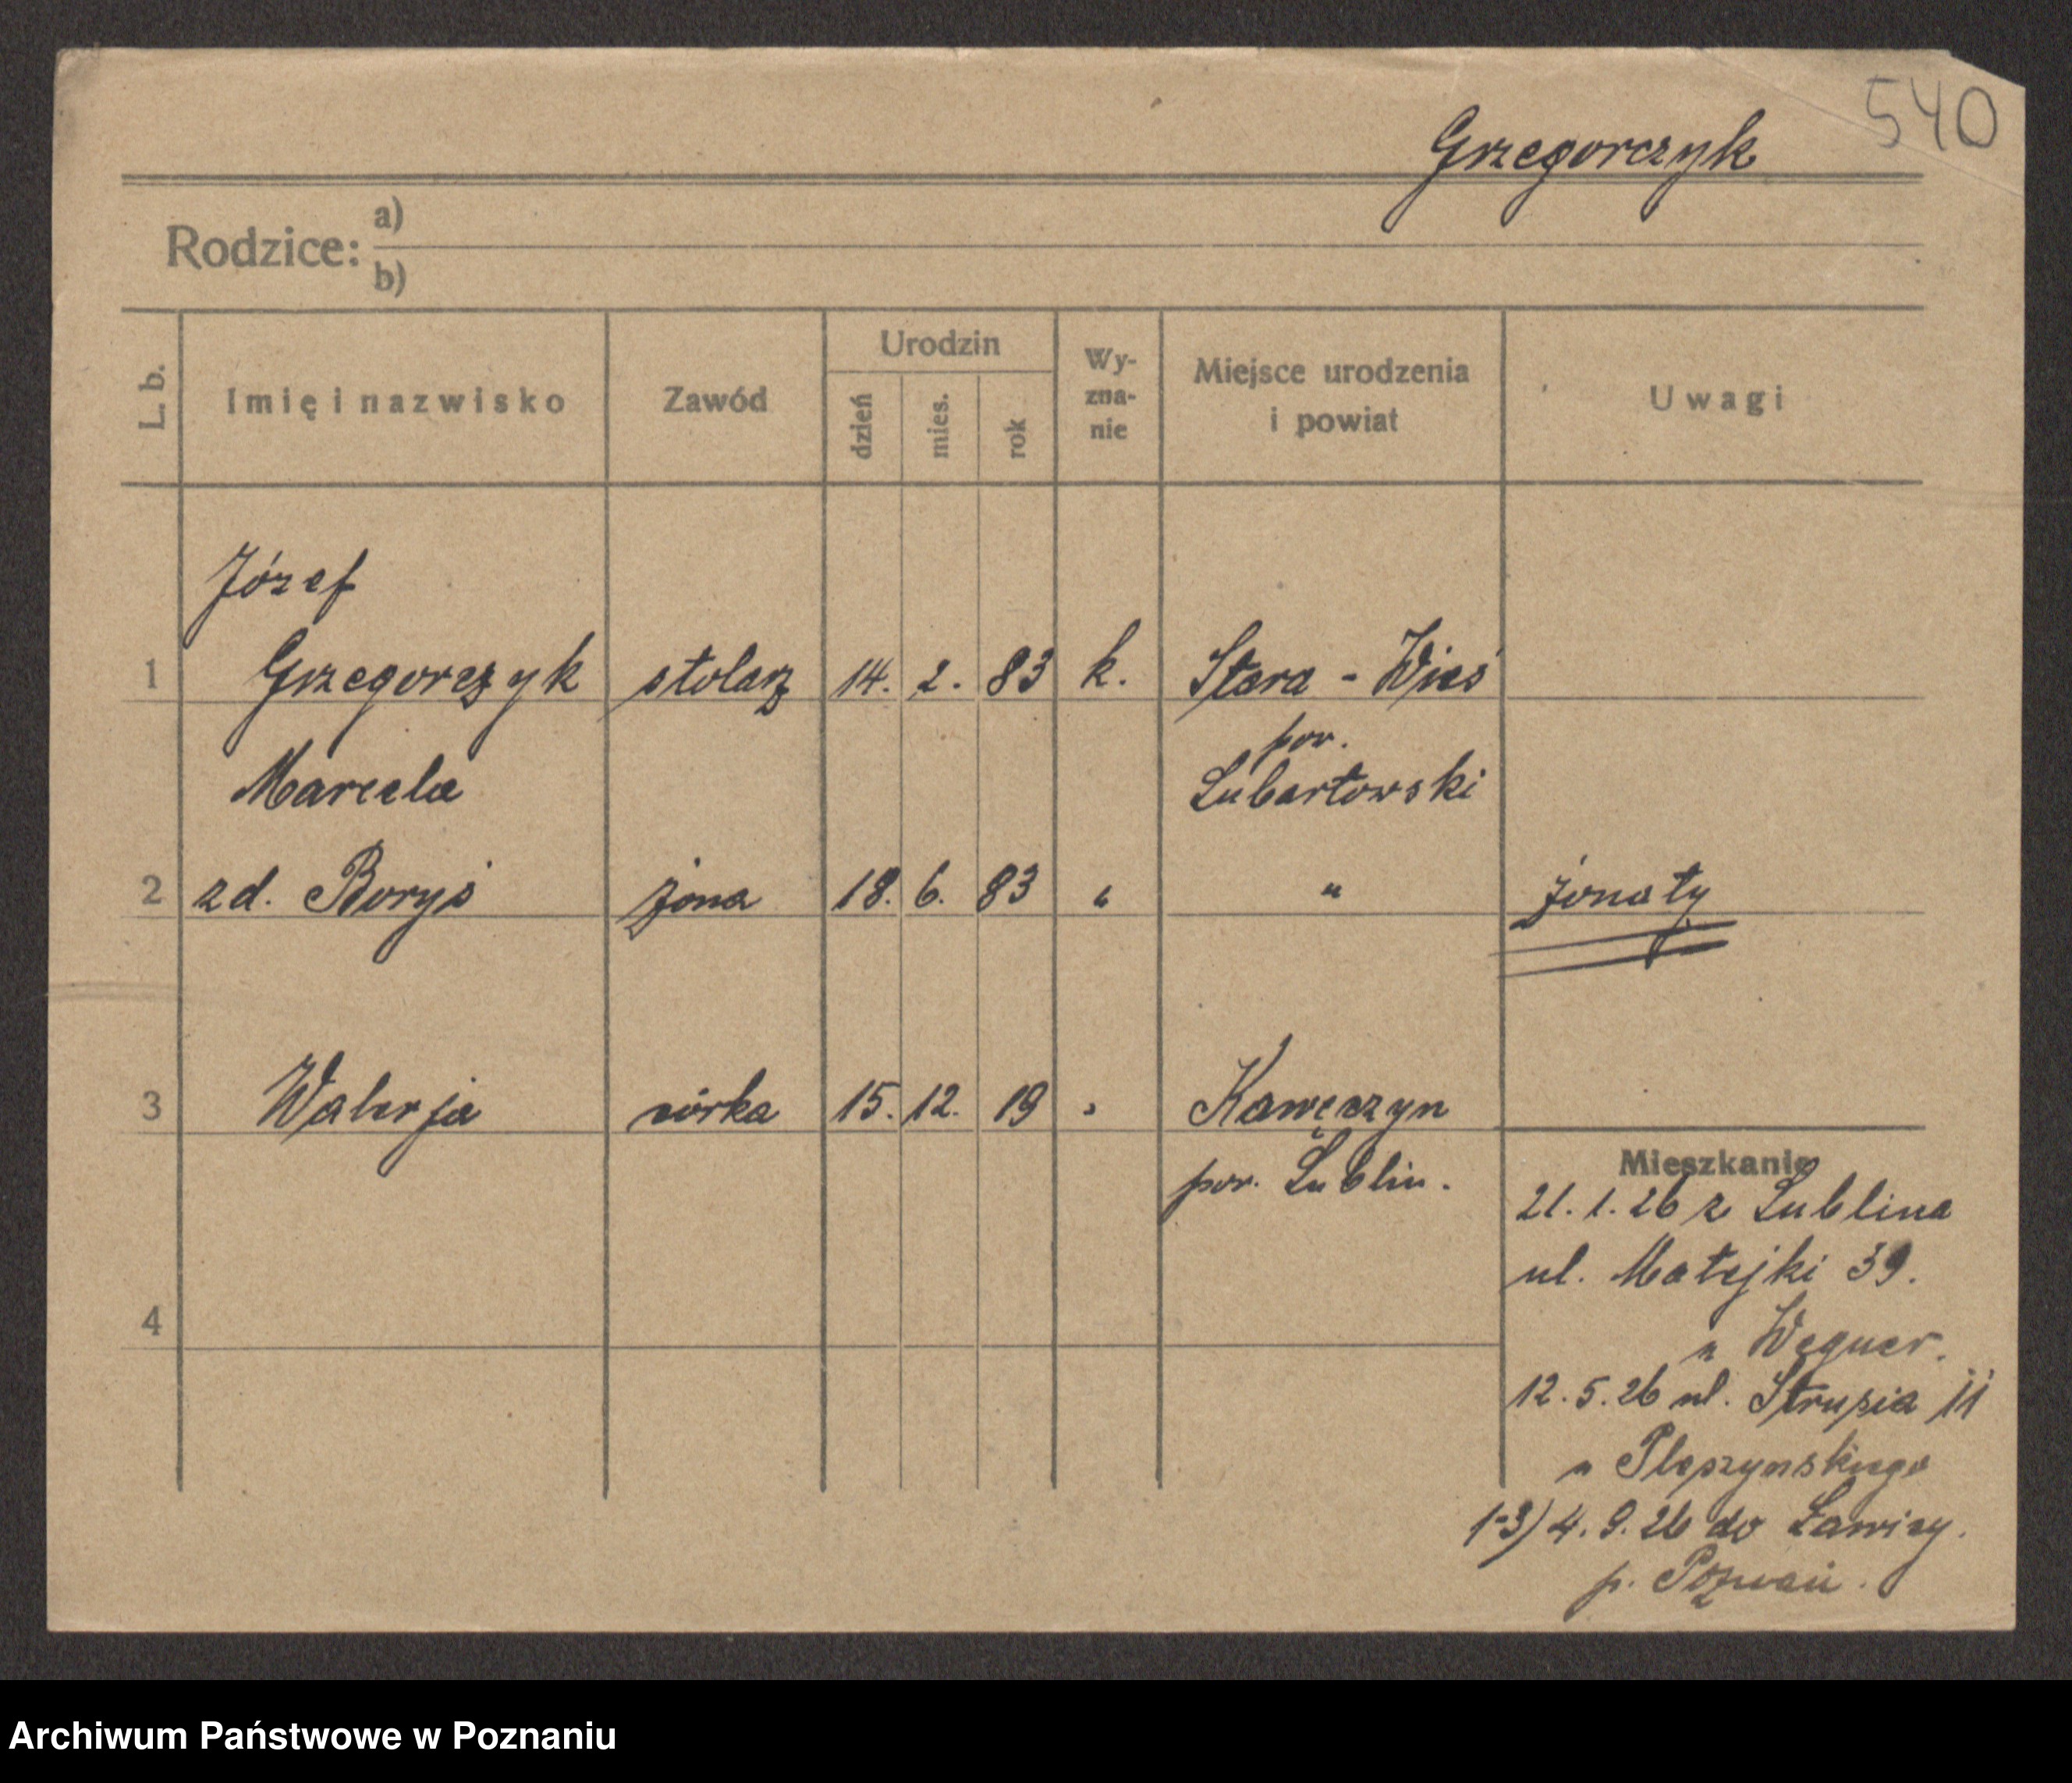 540
Grzegorczyk
Rodzice: a)
b)
L. b. Imię i nazwisko Zawód Urodzin dzień mies. rok Wy-zna-nie Miejsce urodzenia i powiat Uwagi
Józef
1 Grzegorczyk stolarz 14. 2. 83 k. Stara - Wieś
pow.
Marcela Lubartowski
2 zd. Boryś żona 18. 6. 83 " " żonaty
3 Walerja córka 15. 12. 19 " Kawęczyn
pow. Lublin.
Mieszkanie
21. 1. 26 z Lublina
ul. Matejki 39.
4
u Wegner.
12. 5. 26 ul. Strusia 11
u
1-3) 4. 9. 26 do Ławicy.
p. Poznań.
Archiwum Państwowe w Poznaniu